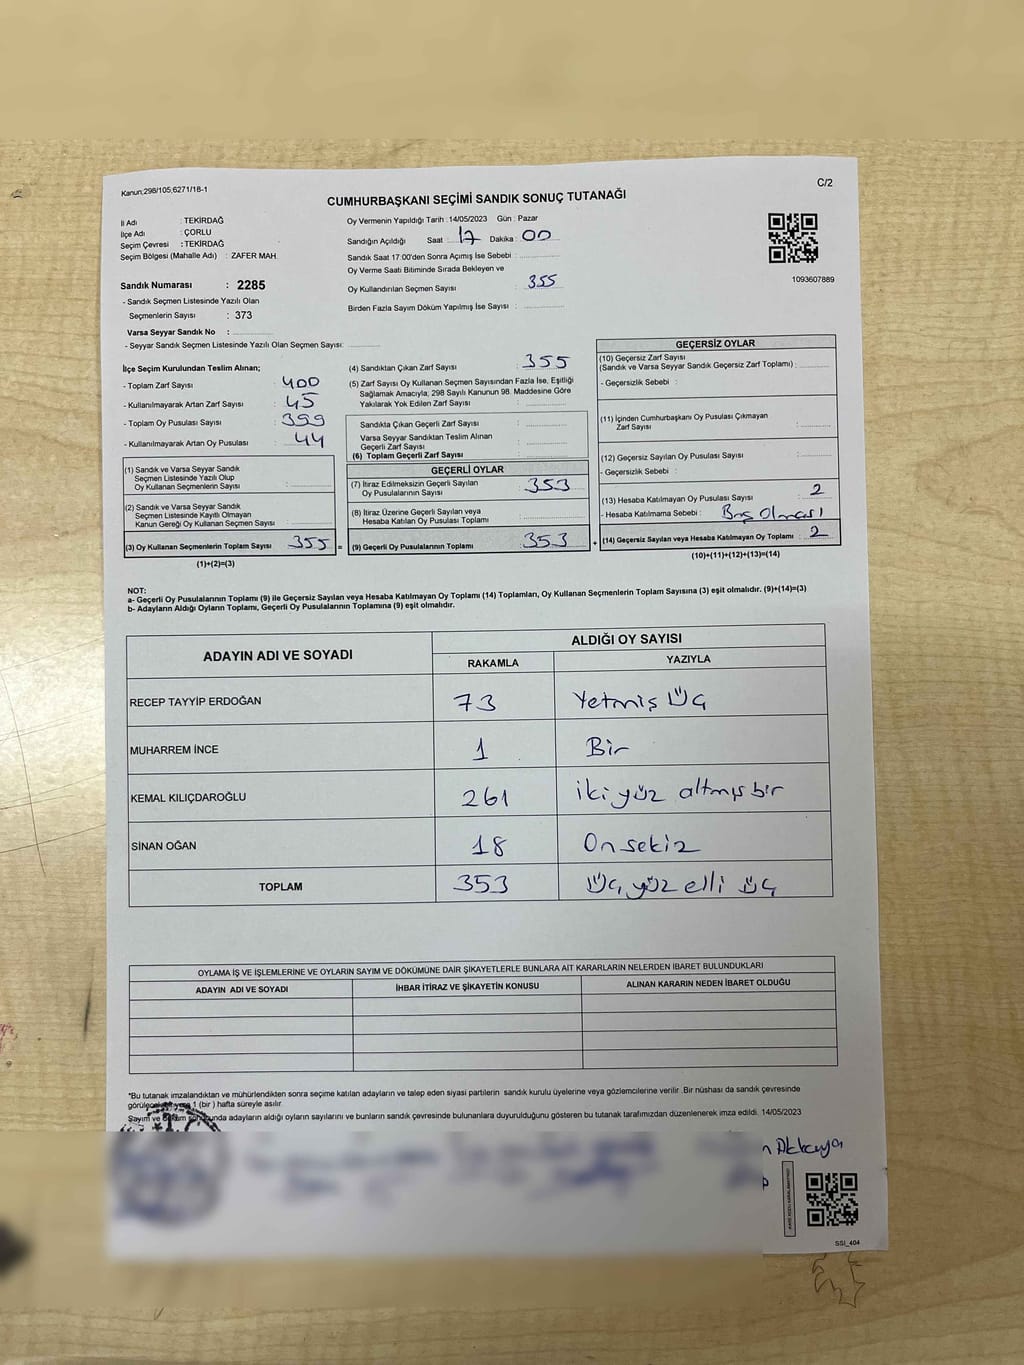 Kanun;298/105;6271/18-1
C/2
CUMHURBAŞKANI SEÇİMİ SANDIK SONUÇ TUTANAĞI
İl Adı : TEKİRDAĞ
İlçe Adı : ÇORLU
Seçim Çevresi : TEKİRDAĞ
Seçim Bölgesi (Mahalle Adı) : ZAFER MAH.
Oy Vermenin Yapıldığı Tarih : 14/05/2023 Gün : Pazar
Sandığın Açıldığı Saat : 17 Dakika : 00
Sandık Saat 17:00'den Sonra Açımış İse Sebebi :
Oy Verme Saati Bitiminde Sırada Bekleyen ve
Oy Kullandırılan Seçmen Sayısı : 355
Birden Fazla Sayım Döküm Yapılmış İse Sayısı :
1093607889
Sandık Numarası : 2285
- Sandık Seçmen Listesinde Yazılı Olan
Seçmenlerin Sayısı : 373
Varsa Seyyar Sandık No :
- Seyyar Sandık Seçmen Listesinde Yazılı Olan Seçmen Sayısı:
İlçe Seçim Kurulundan Teslim Alınan;
- Toplam Zarf Sayısı : 400
- Kullanılmayarak Artan Zarf Sayısı : 45
- Toplam Oy Pusulası Sayısı : 399
- Kullanılmayarak Artan Oy Pusulası : 44
(1) Sandık ve Varsa Seyyar Sandık
Seçmen Listesinde Yazılı Olup
Oy Kullanan Seçmenlerin Sayısı :
(2) Sandık ve Varsa Seyyar Sandık
Seçmen Listesinde Kayıtlı Olmayan
Kanun Gereği Oy Kullanan Seçmen Sayısı :
(3) Oy Kullanan Seçmenlerin Toplam Sayısı 355 =
(1)+(2)=(3)
(4) Sandıktan Çıkan Zarf Sayısı : 355
(5) Zarf Sayısı Oy Kullanan Seçmen Sayısından Fazla İse, Eşitliği
Sağlamak Amacıyla; 298 Sayılı Kanunun 98. Maddesine Göre
Yakılarak Yok Edilen Zarf Sayısı :
Sandıkta Çıkan Geçerli Zarf Sayısı :
Varsa Seyyar Sandıktan Teslim Alınan
Geçerli Zarf Sayısı :
(6) Toplam Geçerli Zarf Sayısı :
GEÇERLİ OYLAR
(7) İtiraz Edilmeksizin Geçerli Sayılan
Oy Pusulalarının Sayısı : 353
(8) İtiraz Üzerine Geçerli Sayılan veya
Hesaba Katılan Oy Pusulası Toplamı :
(9) Geçerli Oy Pusulalarının Toplamı 353 +
GEÇERSİZ OYLAR
(10) Geçersiz Zarf Sayısı
(Sandık ve Varsa Seyyar Sandık Geçersiz Zarf Toplamı) :
- Geçersizlik Sebebi :
(11) İçinden Cumhurbaşkanı Oy Pusulası Çıkmayan
Zarf Sayısı :
(12) Geçersiz Sayılan Oy Pusulası Sayısı :
- Geçersizlik Sebebi :
(13) Hesaba Katılmayan Oy Pusulası Sayısı : 2
- Hesaba Katılmama Sebebi : Boş Olması
(14) Geçersiz Sayılan veya Hesaba Katılmayan Oy Toplamı : 2
(10)+(11)+(12)+(13)=(14)
NOT:
a- Geçerli Oy Pusulalarının Toplamı (9) ile Geçersiz Sayılan veya Hesaba Katılmayan Oy Toplamı (14) Toplamları, Oy Kullanan Seçmenlerin Toplam Sayısına (3) eşit olmalıdır. (9)+(14)=(3)
b- Adayların Aldığı Oyların Toplamı, Geçerli Oy Pusulalarının Toplamına (9) eşit olmalıdır.
ADAYIN ADI VE SOYADI
ALDIĞI OY SAYISI
RAKAMLA YAZIYLA
RECEP TAYYİP ERDOĞAN 73 Yetmiş üç
MUHARREM İNCE 1 Bir
KEMAL KILIÇDAROĞLU 261 iki yüz altmış bir
SİNAN OĞAN 18 On sekiz
TOPLAM 353 Üç yüz elli üç
OYLAMA İŞ VE İŞLEMLERİNE VE OYLARIN SAYIM VE DÖKÜMÜNE DAİR ŞİKAYETLERLE BUNLARA AİT KARARLARIN NELERDEN İBARET BULUNDUKLARI
ADAYIN ADI VE SOYADI İHBAR İTİRAZ VE ŞİKAYETİN KONUSU ALINAN KARARIN NEDEN İBARET OLDUĞU
*Bu tutanak imzalandıktan ve mühürlendikten sonra seçime katılan adayların ve talep eden siyasi partilerin sandık kurulu üyelerine veya gözlemcilerine verilir. Bir nüshası da sandık çevresinde
1 (bir) hafta süreyle asılır.
Sayım ve adayların aldığı oyların sayılarını ve bunların sandık çevresinde bulunanlara duyurulduğunu gösteren bu tutanak tarafımızdan düzenlenerek imza edildi. 14/05/2023
Akkaya
SSI_404